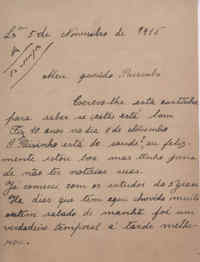 Lx.ª 5 de Novembro de 1915
Meu querido Paisinho
Escrevo-lhe esta cartinha
para saber se está bom
Fiz 10 anos no dia 1 de Novembro
O Paisinho está de saude, eu feliz-
mente estou boa mas tenho pena
de não ter noticias suas.
Já comecei com os estudos do 2º grau
He dias que tem aqui chovido muito
ontem sabado de manhã foi um
verdadeiro temporal á tarde melho-
rou.